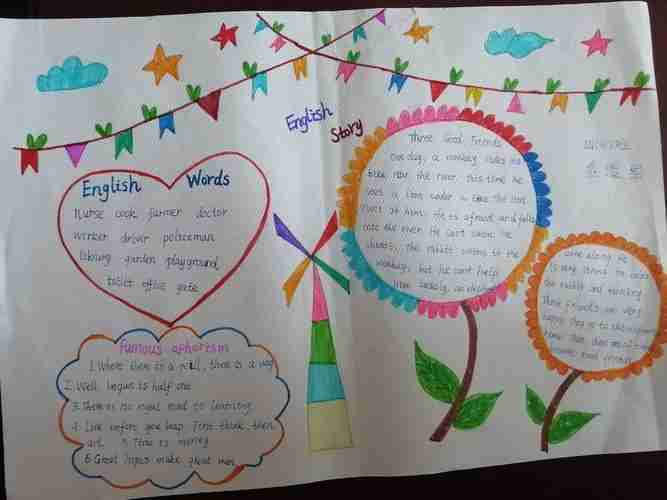 English
Story
English Words
Nurse cook farmer doctor
worker driver policeman
library garden playground
toilet office gate
Famous aphorism
1. Where there is a will, there is a way
2. Well begun is half
3. There is no royal road to learning
4. before you leap First think, then
act. 5. Time is money
6. Great hopes make great men
Three Good Friends
One day, a monkey rides his
bike near the river. This time he
sees a lion under a tree. The lion
runs at him. He is afraid and falls
into the river. He can't swim. He
shouts. The rabbit swims to the
monkey, but he can't help
him. Luckily, an elephant
came along. He
is very strong. He
the rabbit and monkey.
Three friends are very
happy. They go to the elephant's
home. Then,
good friends